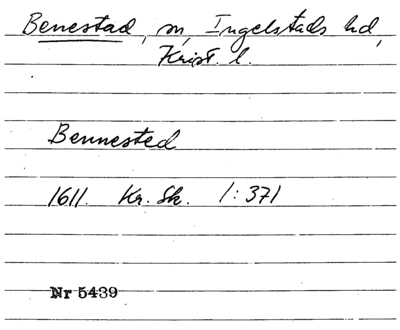 Benestad, sn, Ingelstads hd,
Krist. l.
Bennested
1611. Kr. Sk. 1:371
Nr 5439